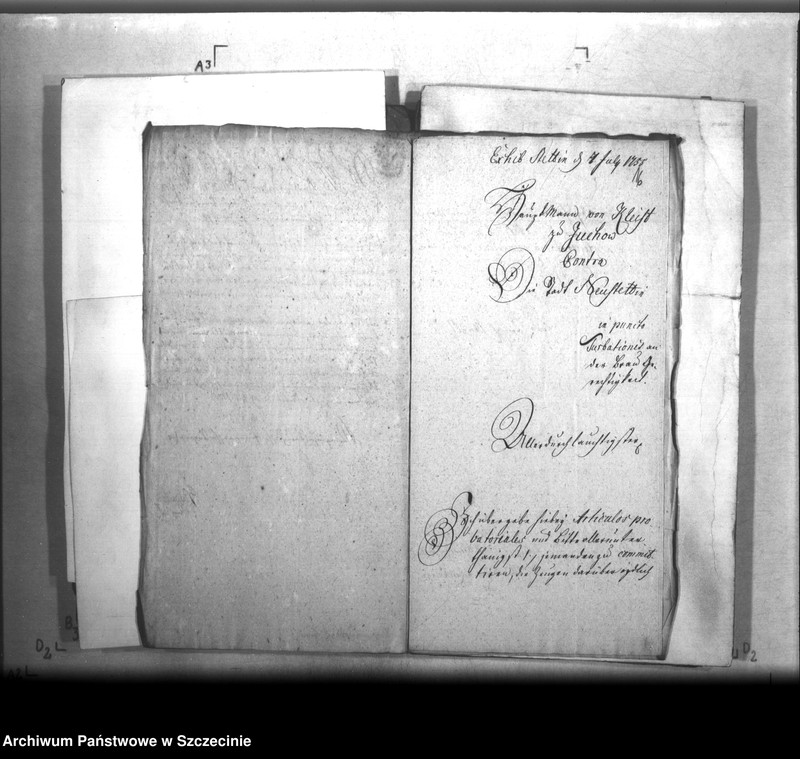 A3
Exhib Stettin d 7 July 1756
Hauptmann von Kleist
zu Juchow
Contra
Die Stadt Neustettin
in puncto
Turbationis an
der Brau Ge-
rechtigkeit.
Allerdurchlauchtigster,
Ich übergebe hiebey Articulos pro-
batoriales und bitte allerunter-
thänigst jemanden zu commit-
tiren, die Zeugen darüber eydlich
D2
D2
Archiwum Państwowe w Szczecinie